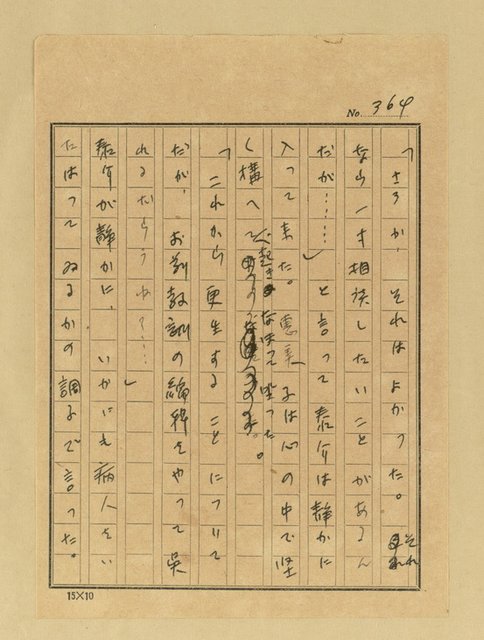 No. 364
「さうか、それはよかつた。それ
なら一寸相談したいことがあるん
だが……」と言つて泰介は静かに
入つて来た。恵美子は心の中で堅
く構へて起きなほつて坐つた。
「これから更生することについて
だが、お前教訓の編輯をやつて呉
れるだらうね?……」
泰介が静かに、いかにも病人をい
たはつてゐるかの調子で言つた。
15×10